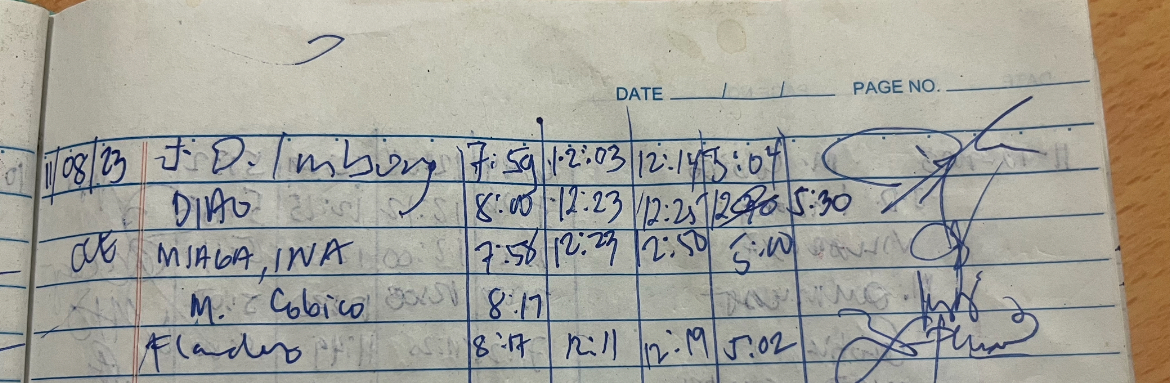 DATE / / PAGE NO.
11/08/23 J. D. Imbong 7:59 12:03 12:14 5:04
DJAO 8:00 12:23 12:25 5:30
MIAGA, INA 7:56 12:23 12:50 5:00
M. Cobico 8:17
8:17 12:11 12:19 5:02